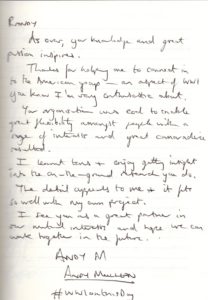 RANDY
As ever, your knowledge and great
passion inspires.
Thanks for helping me to connect in
to the American group - an aspect of WW1
you know I'm very enthusiastic about.
Your organisation was cool to enable
great flexibility amongst people with a
range of interests and great camaraderie
resulted.
I learnt tons & enjoy getting insight
into the on-the-ground research you do.
The detail appeals to me & it fits
so well with my own project.
I see you as a great partner in
our mutual interests and hope we can
work together in the future...
ANDY M
ANDY